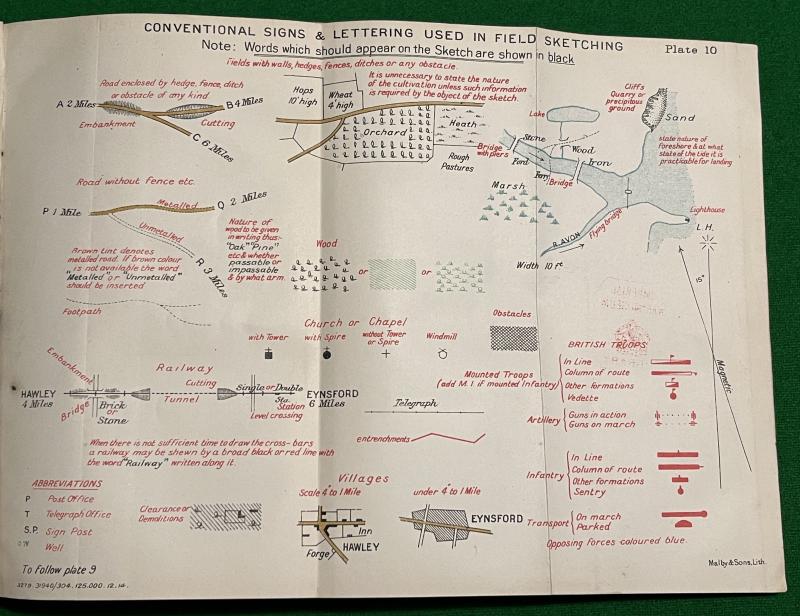 CONVENTIONAL SIGNS & LETTERING USED IN FIELD SKETCHING
Plate 10
Note: Words which should appear on the Sketch are shown in black
Fields with walls, hedges, fences, ditches or any obstacle.
Road enclosed by hedge, fence, ditch
or obstacle of any kind
A 2 Miles
B 4 Miles
Embankment
Cutting
C 6 Miles
Hops
10' high
Wheat
4' high
It is unnecessary to state the nature
of the cultivation unless such information
is required by the object of the sketch.
Orchard
Heath
Rough
Pastures
Cliffs
Quarry or
precipitous
ground
Sand
Lake
Stone
Wood
Iron
Bridge
with piers
Ford
Ferry
Bridge
state nature of
foreshore & at what
state of the tide it is
practicable for landing
Marsh
Lighthouse
L.H.
R. AVON
Flying bridge
Width 10 ft
Road without fence etc.
Metalled
P 1 Mile
Q 2 Miles
Unmetalled
R 3 Miles
Brown tint denotes
metalled road. If brown colour
is not available the word
"Metalled" or "Unmetalled"
should be inserted
Nature of
wood to be given
in writing thus:-
"Oak" "Pine"
etc & whether
passable or
impassable
& by what arm.
Wood
or
or
Footpath
Church or Chapel
with Tower
with Spire
without Tower
or Spire
Windmill
Obstacles
Magnetic
Railway
Embankment
Cutting
Single or Double
HAWLEY
4 Miles
Bridge
Brick
or
Stone
Tunnel
Sta.
Station
Level crossing
EYNSFORD
6 Miles
Telegraph
When there is not sufficient time to draw the cross-bars
a railway may be shewn by a broad black or red line with
the word "Railway" written along it.
entrenchments
BRITISH TROOPS
Mounted Troops
(add M.I. if mounted Infantry)
In Line
Column of route
Other formations
Vedette
Artillery
Guns in action
Guns on march
Infantry
In Line
Column of route
Other formations
Sentry
Transport
On march
Parked
Opposing forces coloured blue.
ABBREVIATIONS
P Post Office
T Telegraph Office
S.P. Sign Post
W Well
Clearance or
Demolitions
Villages
Scale 4" to 1 Mile
under 4" to 1 Mile
Inn
Forge
HAWLEY
EYNSFORD
To follow plate 9
Malby & Sons, Lith.